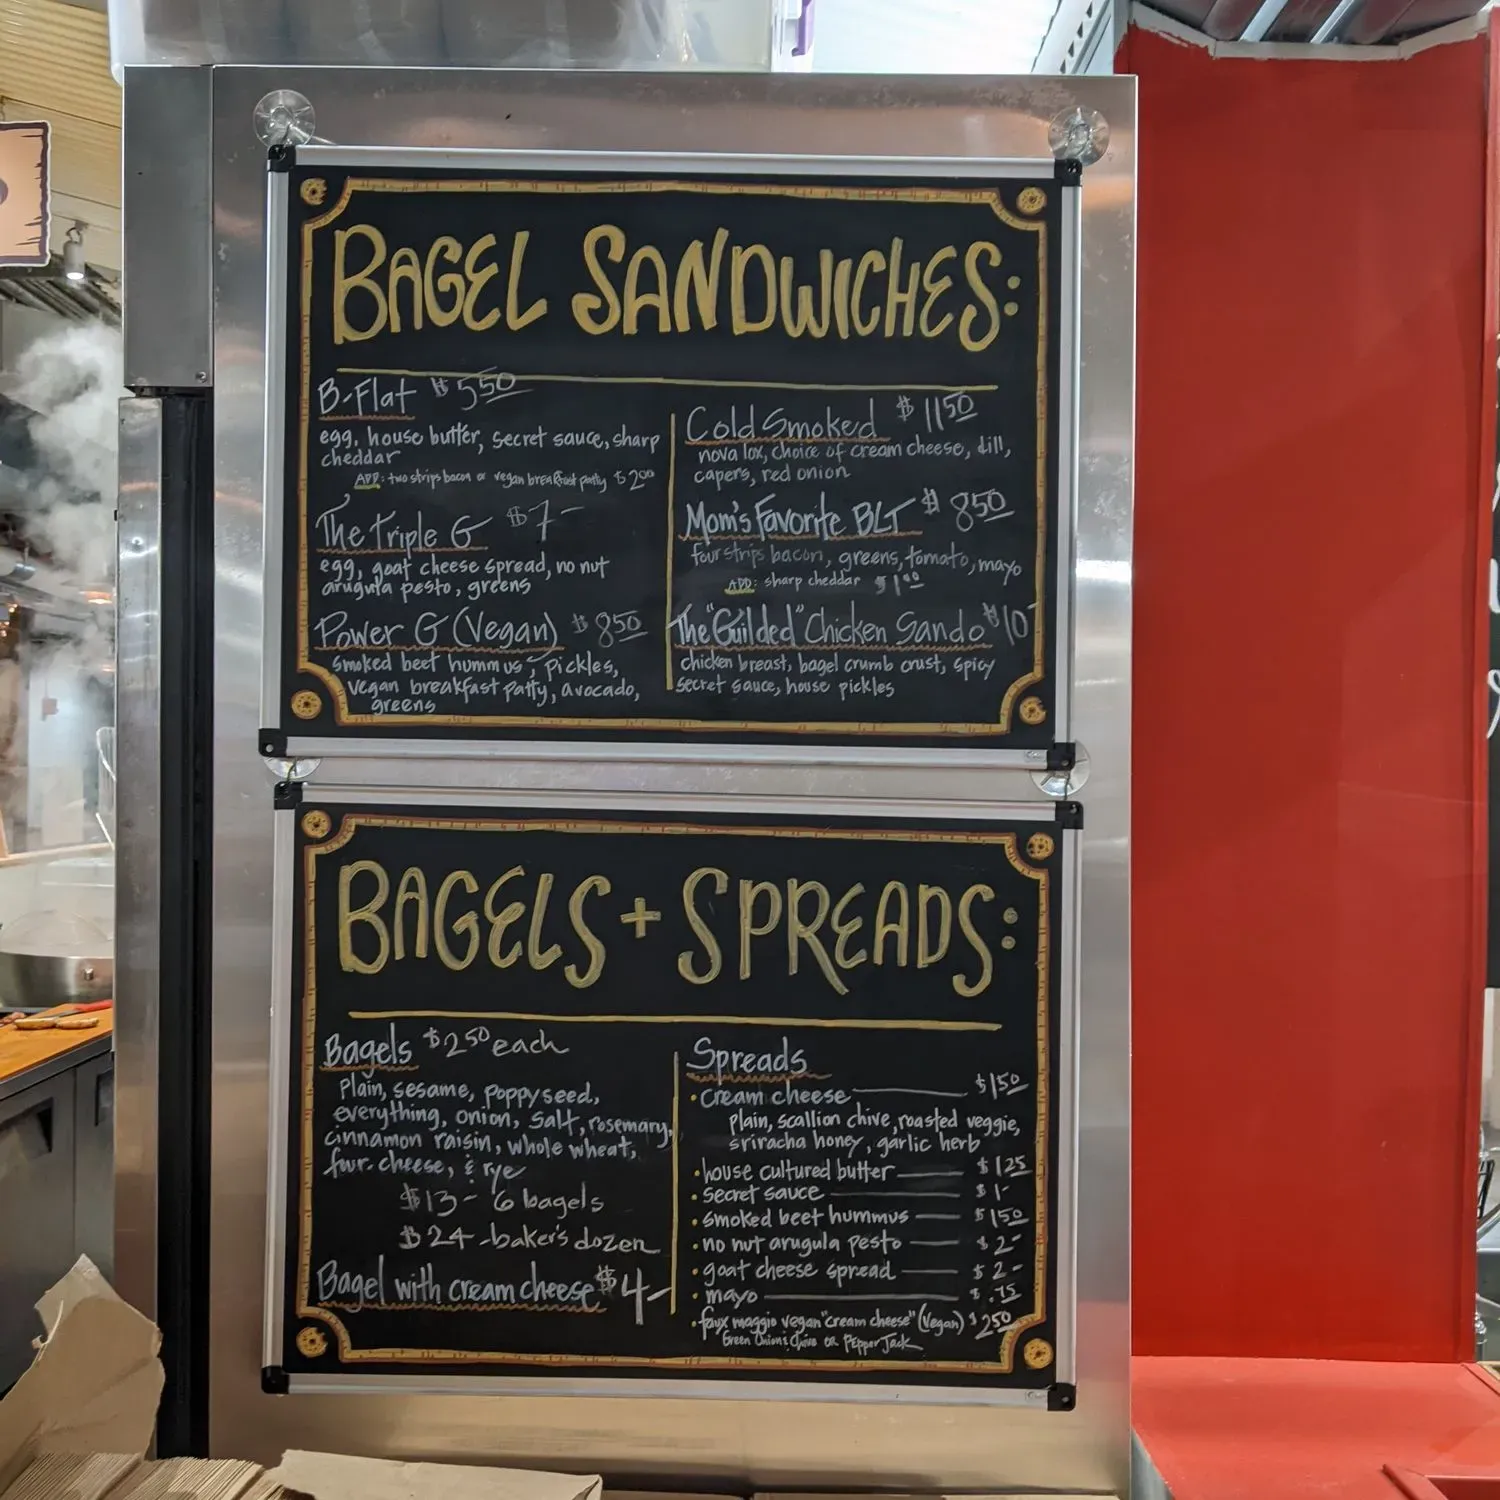 BAGEL SANDWICHES:
B-Flat $5.50
egg, house butter, secret sauce, sharp
cheddar
ADD: two strips bacon or vegan breakfast patty $2.00
The Triple G $7-
egg, goat cheese spread, no nut
arugula pesto, greens
Power G (Vegan) $8.50
smoked beet hummus, pickles,
vegan breakfast patty, avocado,
greens
Cold Smoked $11.50
nova lox, choice of cream cheese, dill,
capers, red onion
Mom's Favorite BLT $8.50
four strips bacon, greens, tomato, mayo
ADD: sharp cheddar $1.00
The "Guilded" Chicken Sando $10-
chicken breast, bagel crumb crust, spicy
secret sauce, house pickles
BAGELS + SPREADS:
Bagels $2.50 each
Plain, sesame, poppyseed,
everything, onion, salt, rosemary,
cinnamon raisin, whole wheat,
four-cheese, & rye
$13- 6 bagels
$24-baker's dozen
Bagel with cream cheese $4-
Spreads
• cream cheese $1.50
plain, scallion chive, roasted veggie,
sriracha honey, garlic herb
• house cultured butter $1.25
• secret sauce $1-
• smoked beet hummus $1.50
• no nut arugula pesto $2-
• goat cheese spread $2-
• mayo $.75
• faux maggio vegan "cream cheese" (Vegan) $2.50
Green Onion & Chive or Pepper Jack